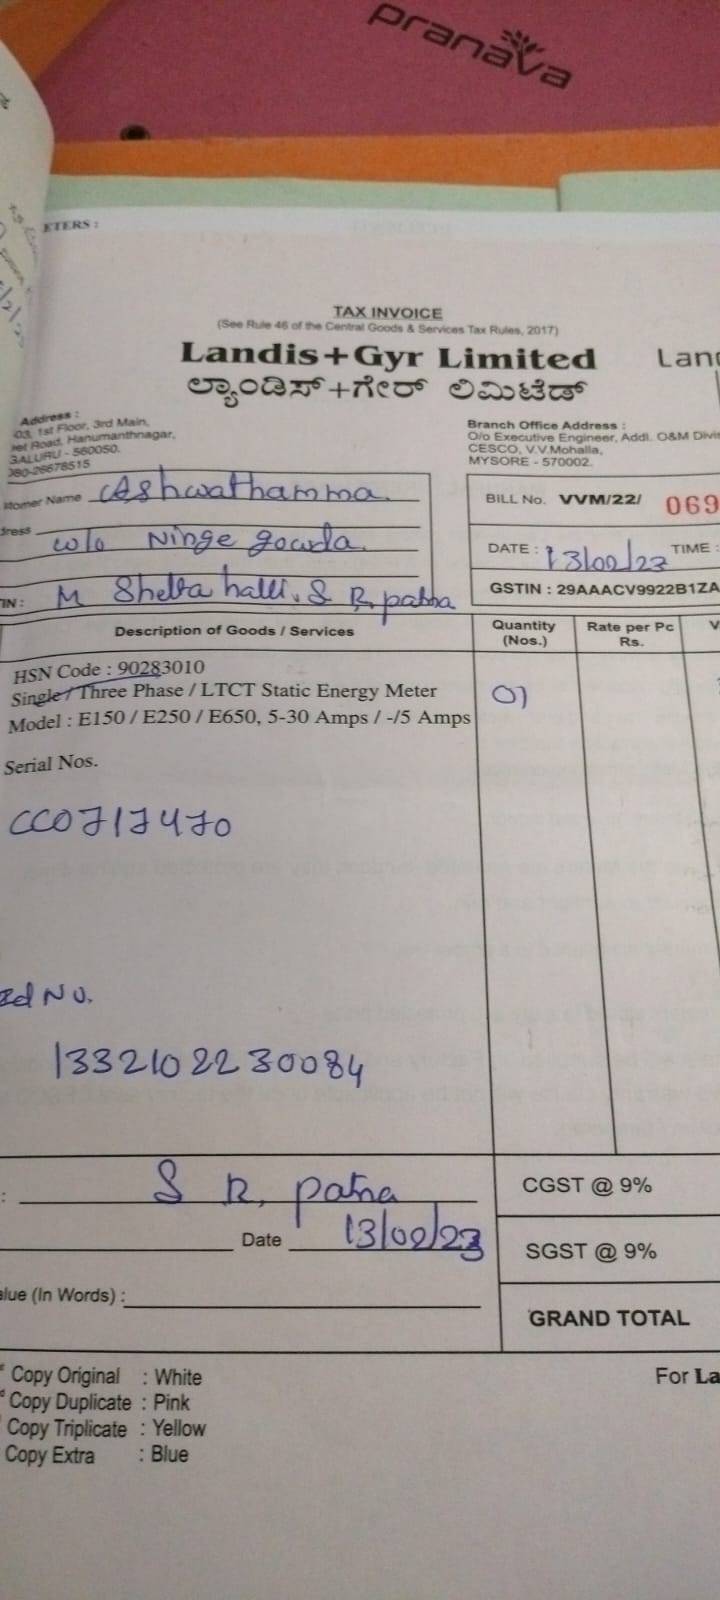 pranava
ETERS :
TAX INVOICE
(See Rule 46 of the Central Goods & Services Tax Rules, 2017)
Landis+Gyr Limited
ಲ್ಯಾಂಡಿಸ್+ಗೇರ್ ಲಿಮಿಟೆಡ್
Address :
03, 1st Floor, 3rd Main,
Road, Hanumanthnagar,
GALURU - 560050.
080-26678515
Branch Office Address :
O/o Executive Engineer, Addl. O&M Divi
CESCO, V.V.Mohalla,
MYSORE - 570002.
stomer Name Ashwathamma
BILL No. VVM/22/ 069
dress w/o Ninge gowda
DATE : 13/02/23 TIME :
IN : M Shetta halli, S R, patna
GSTIN : 29AAACV9922B1ZA
Description of Goods / Services
Quantity (Nos.)
Rate per Pc Rs.
V
HSN Code : 90283010
Single / Three Phase / LTCT Static Energy Meter
01
Model : E150 / E250 / E650, 5-30 Amps / -/5 Amps
Serial Nos.
CC0717470
No.
1332102230084
: S R, patna
CGST @ 9%
Date 13/02/23
SGST @ 9%
alue (In Words) :
GRAND TOTAL
Copy Original : White
For La
Copy Duplicate : Pink
Copy Triplicate : Yellow
Copy Extra : Blue